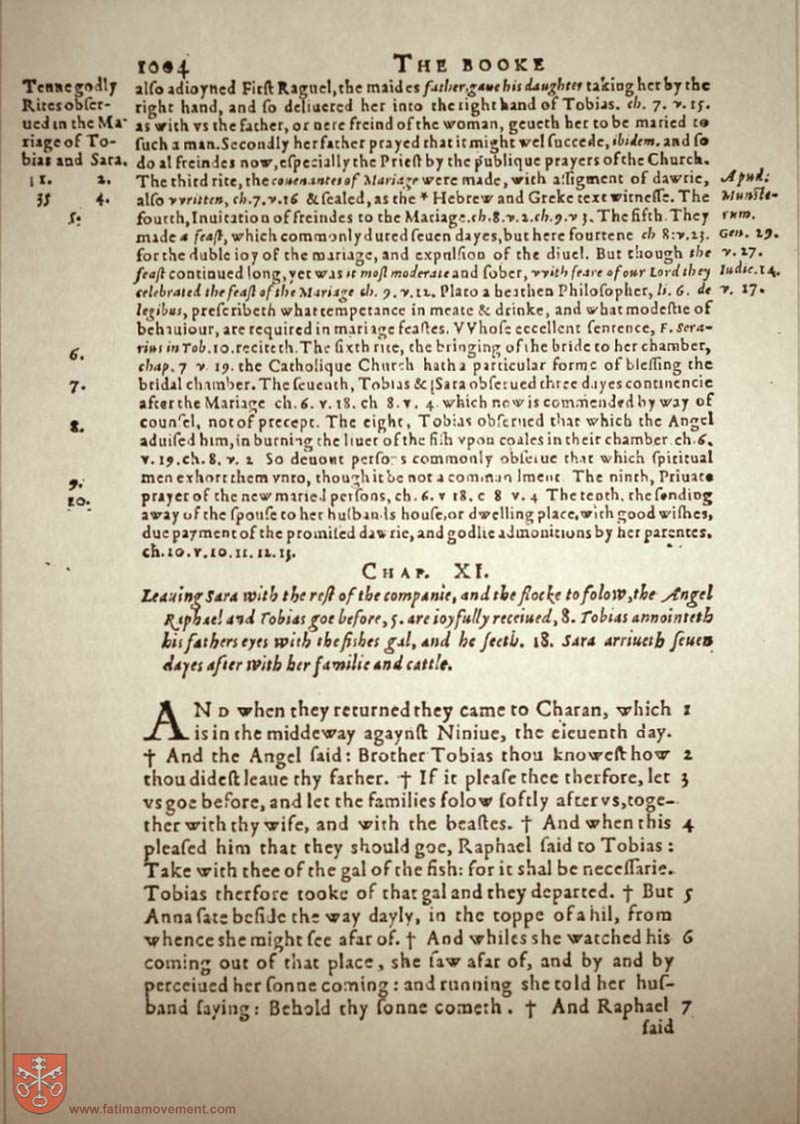 1004 THE BOOKE
Tenne godly
Rites obser-
ued in the Ma-
riage of To-
bias and Sara.
1. 2.
3 4.
5.
6.
7.
8.
9.
10.
also adioyned First Raguel, the maides father, gaue his daughter taking her by the
right hand, and so deliuered her into the right hand of Tobias. ch. 7. v. 15.
as with vs the father, or nere freind of the woman, geueth her to be maried to
such a man. Secondly her father prayed that it might wel succede, ibidem. and so
do al freindes now, especially the Priest by the publique prayers of the Church.
The third rite, the couenantes of Mariage were made, with assigment of dawrie,
also vvritten, ch. 7. v. 16 & sealed, as the * Hebrew and Greke text witnesse. The
fourth, Inuitation of freindes to the Mariage. ch. 8. v. 2. ch. 9. v 3. The fifth. They
made a feast, which commonly dured seuen dayes, but here fourtene ch 8: v. 23.
for the duble ioy of the mariage, and expulsion of the diuel. But though the
feast continued long, yet was it most moderate and sober, vvith feare of our Lord they
celebrated the feast of the Mariage ch. 9. v. 12. Plato a heathen Philosopher, li. 6. de
legibus, prescribeth what temperance in meate & drinke, and what modestie of
behauiour, are required in mariage feastes. VVhose eccellent sentence, F. Sera-
rius in Tob. 10. reciteth. The sixth rite, the bringing of the bride to her chamber,
chap. 7 v. 19. the Catholique Church hath a particular forme of blessing the
bridal chamber. The seuenth, Tobias & Sara obserued three dayes continencie
after the Mariage ch. 6. v. 18. ch 8. v. 4. which now is commended by way of
counsel, not of precept. The eight, Tobias obserued that which the Angel
aduised him, in burning the liuer of the fish vpon coales in their chamber. ch. 6.
v. 19. ch. 8. v. 2 So deuout persons commonly obserue that which spiritual
men exhort them vnto, though it be not a commandment. The ninth, Priuate
prayer of the new maried persons, ch. 6. v 18. c 8 v. 4 The tenth, the sending
away of the spouse to her husbands house, or dwelling place, with good wishes,
due payment of the promised dawrie, and godlie admonitions by her parentes.
ch. 10. v. 10. 11. 12. 13.
Apud:
Munste-
rum.
Gen. 29.
v. 27.
Iudic. 14.
v. 17.
CHAP. XI.
Leauing Sara with the rest of the companie, and the flocke to folow, the Angel
Raphael and Tobias goe before, 5. are ioyfully receiued, 8. Tobias annointeth
his fathers eyes with the fishes gal, and he seeth. 18. Sara arriueth seuen
dayes after with her familie and cattle.
AND when they returned they came to Charan, which 1
is in the middeway agaynst Niniue, the eleuenth day.
† And the Angel said: Brother Tobias thou knowest how 2
thou didest leaue thy father. † If it please thee therfore, let 3
vs goe before, and let the families folow softly after vs, toge-
ther with thy wife, and with the beastes. † And when this 4
pleased him that they should goe, Raphael said to Tobias:
Take with thee of the gal of the fish: for it shal be necessarie.
Tobias therfore tooke of that gal and they departed. † But 5
Anna sate beside the way dayly, in the toppe of a hil, from
whence she might see afar of. † And whiles she watched his 6
coming out of that place, she saw afar of, and by and by
perceiued her sonne coming: and running she told her hus-
band saying: Behold thy sonne cometh. † And Raphael 7
said
www.fatimamovement.com